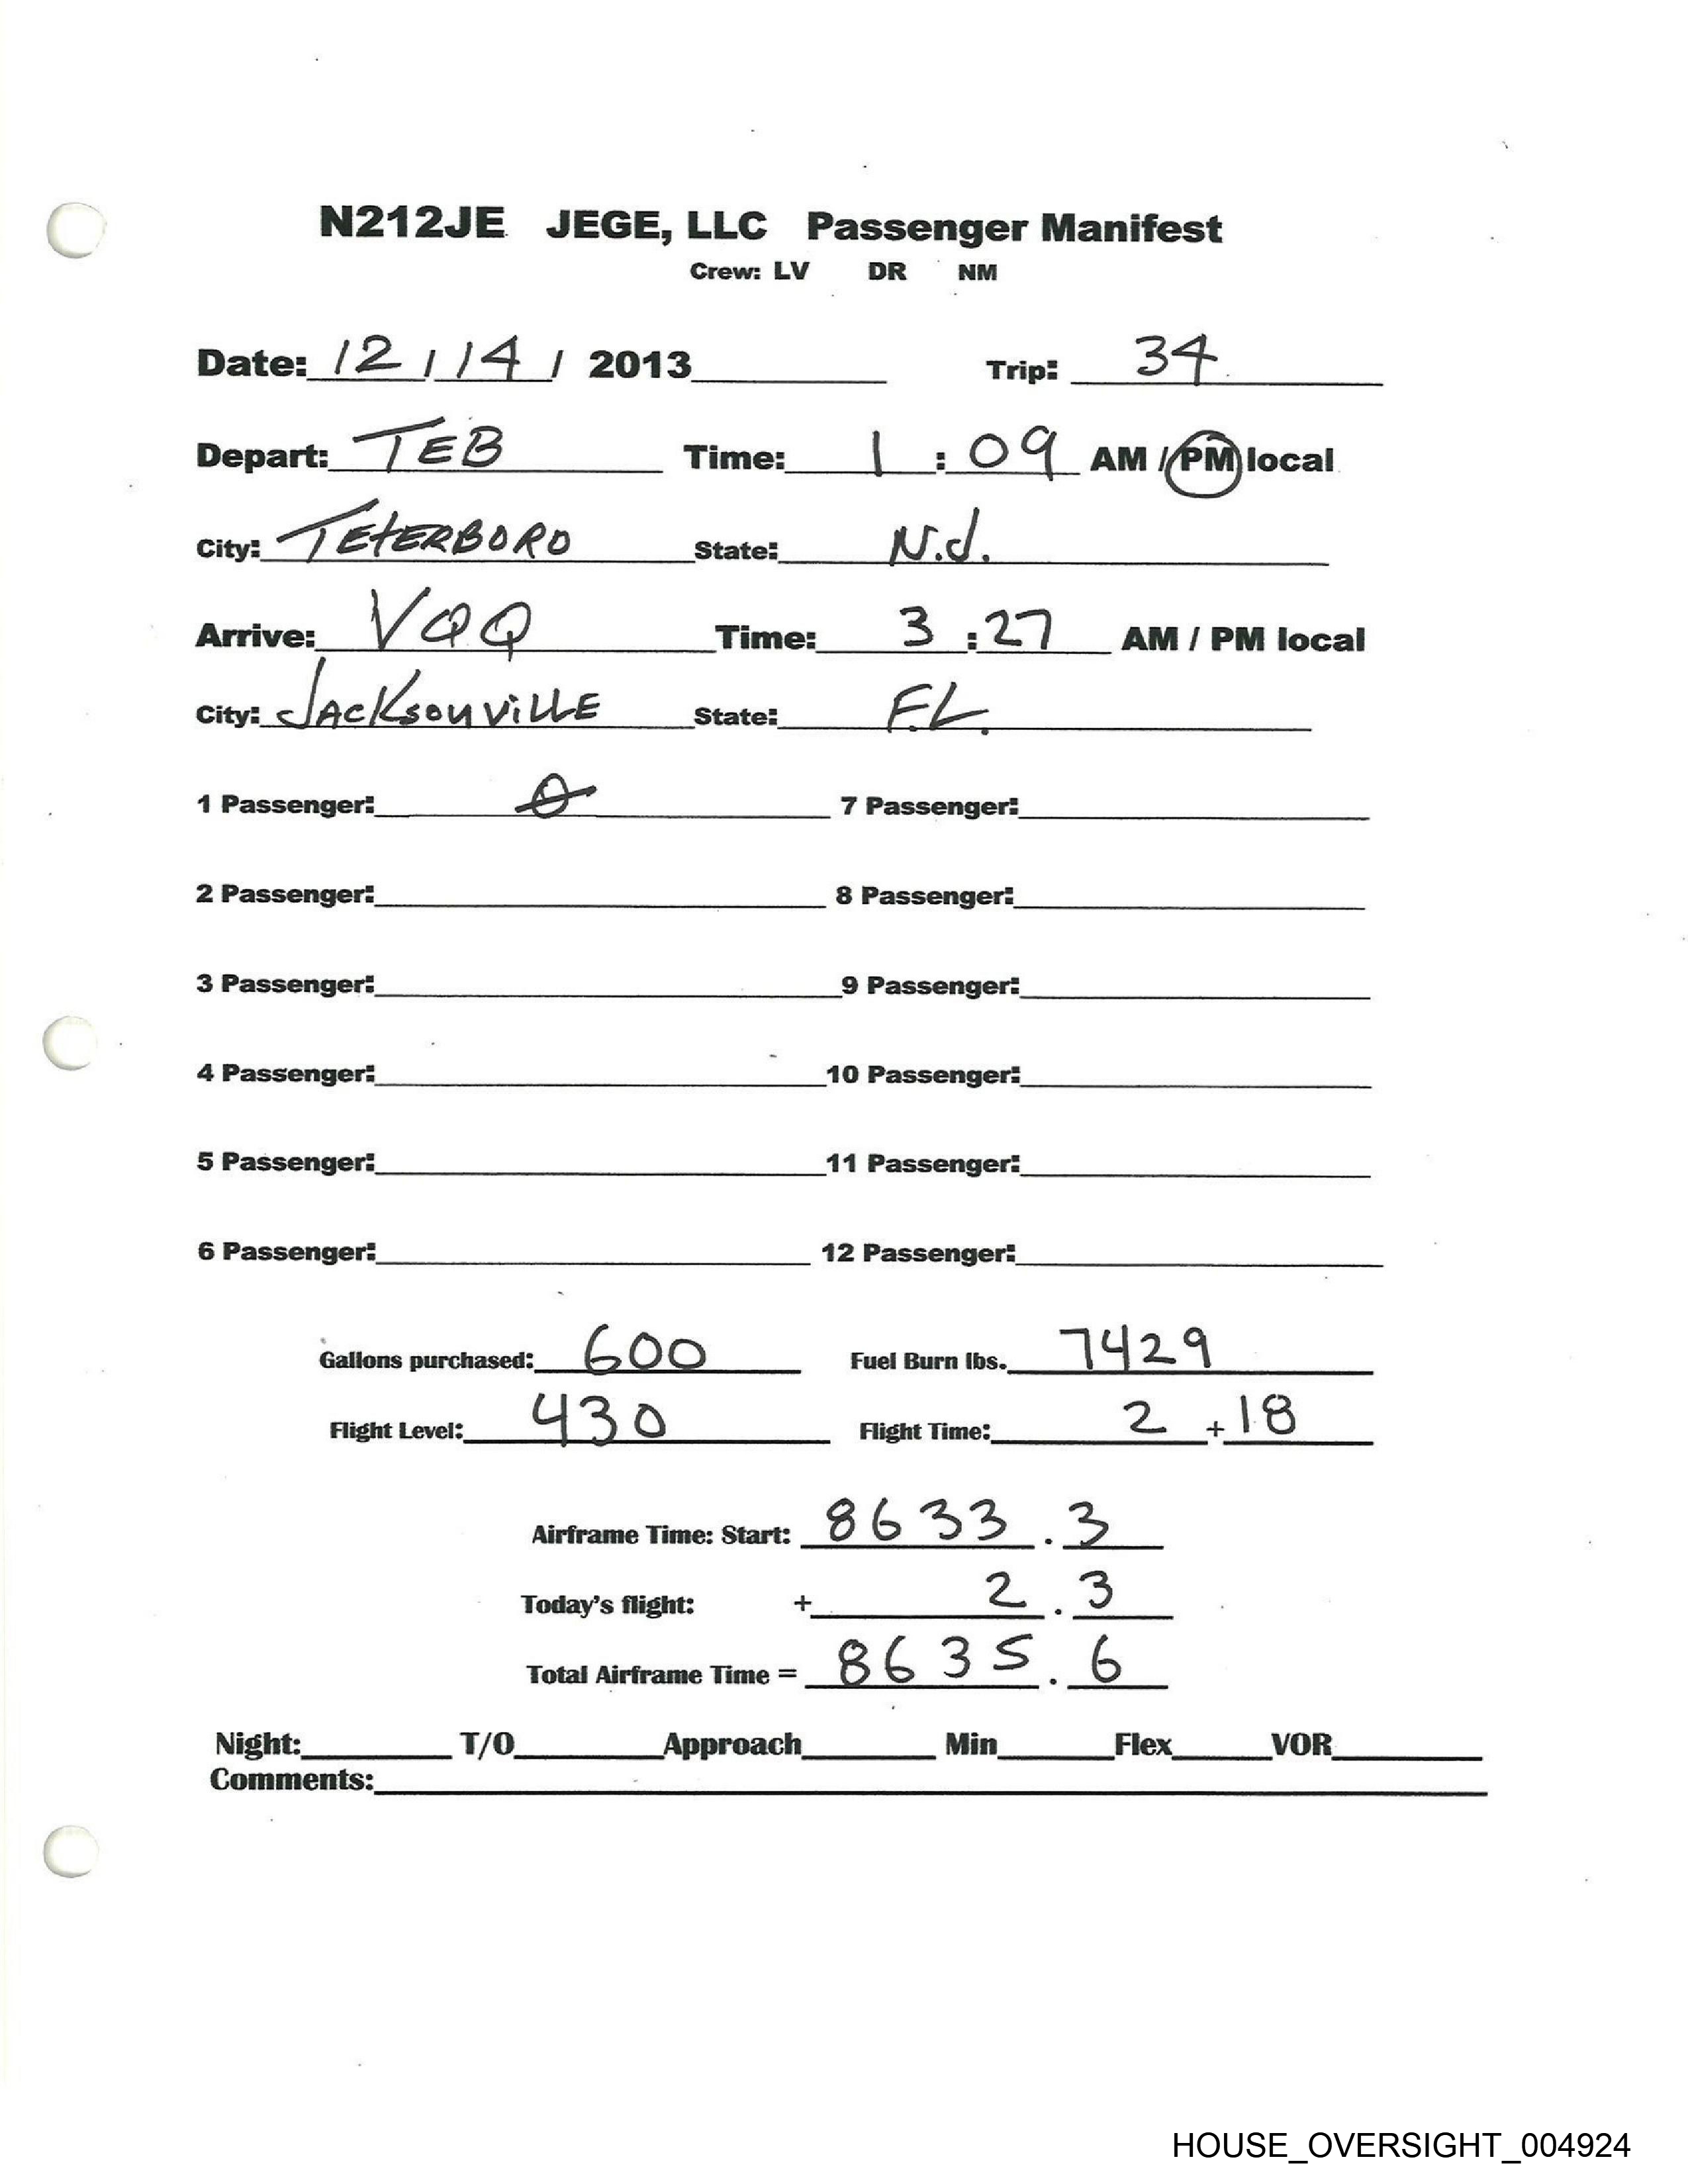 N212JE JEGE, LLC Passenger Manifest
Crew: LV DR NM
Date: 12 / 14 / 2013 Trip: 34
Depart: TEB Time: 1 : 09 AM / PM local
City: TETERBORO State: N.J.
Arrive: VQQ Time: 3 : 27 AM / PM local
City: JACKSONVILLE State: F.L.
1 Passenger: 0 7 Passenger:
2 Passenger: 8 Passenger:
3 Passenger: 9 Passenger:
4 Passenger: 10 Passenger:
5 Passenger: 11 Passenger:
6 Passenger: 12 Passenger:
Gallons purchased: 600 Fuel Burn lbs. 7429
Flight Level: 430 Flight Time: 2 + 18
Airframe Time: Start: 8633 . 3
Today's flight: + 2 . 3
Total Airframe Time = 8635 . 6
Night: T/O Approach Min Flex VOR
Comments:
HOUSE_OVERSIGHT_004924